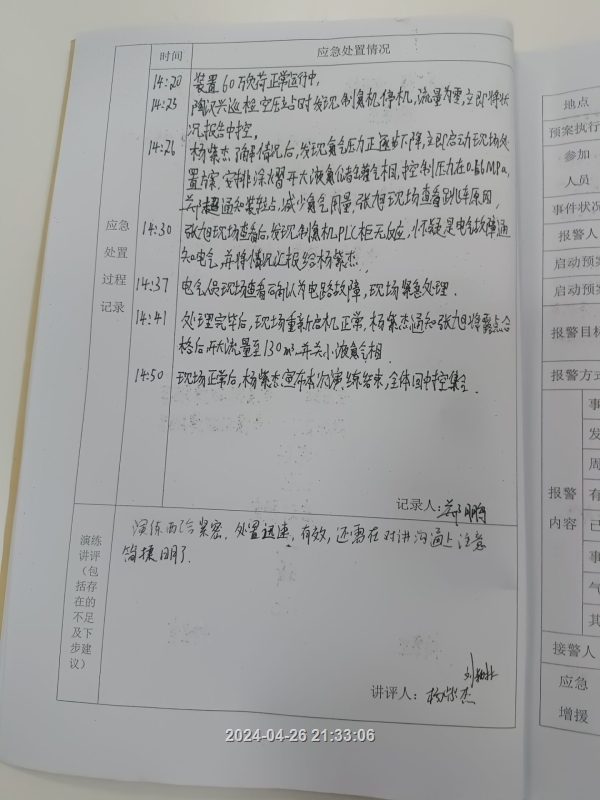 时间 应急处置情况
14:20 装置60万负荷正常运行中,
14:23 陶汉兴巡检空压站时发现制氮机停机,流量为零,立即将状
况报告中控。
14:26 杨紫杰了解情况后,发现氮气压力正逐步下降,立即启动现场处
置方案,安排涂熠开大液氮气相,控制压力在0.66MPa,
通知装车站,减少氮气用量,张旭现场查看跳车原因,
14:30 张旭现场查看后,发现制氮机PLC柜无反应,怀疑是电气故障通
知电气,并将情况汇报给杨紫杰.
14:37 电气人员现场查看确认为电路故障,现场紧急处理.
14:41 处理完毕后,现场重新启机正常,杨紫杰通知张旭将露点合
格后开大流量至130m³,并关小液氮气相.
14:50 现场正常后,杨紫杰宣布本次演练结束,全体回中控集合.
应急
处置
过程
记录
记录人:
演练
讲评
(包
括存
在的
不足
及下
步建
议)
演练配合紧密,处置迅速,有效,还需在对讲沟通上注意
简捷明了.
讲评人:杨紫杰
地点
预案执行
参加
人员
事件状况
报警人
启动预案
启动预案
报警目标
报警方式
报警
内容
事
发
周
有
已
事
气
其
接警人
应急
增援
2024-04-26 21:33:06